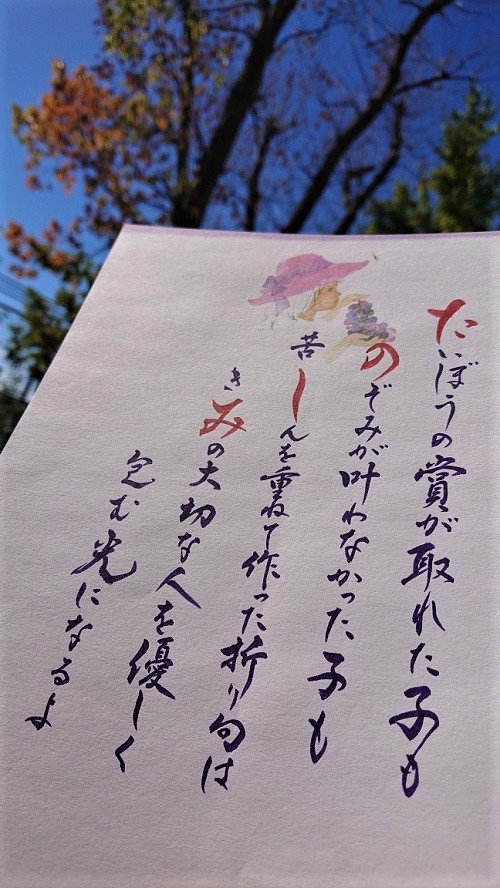 たいぼうの賞が取れた子も
のぞみが叶わなかった子も
苦しんを重ねて作った折り句は
きみの大切な人を優しく
包む光になるよ